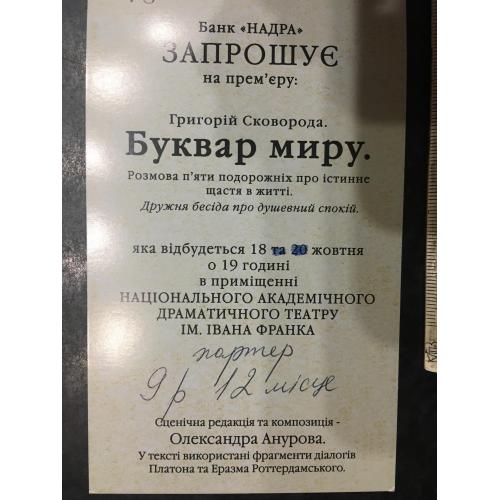 Банк «НАДРА»
ЗАПРОШУЄ
на прем’єру:
Григорій Сковорода.
Буквар миру.
Розмова п’яти подорожніх про істинне
щастя в житті.
Дружня бесіда про душевний спокій.
яка відбудеться 18 та 20 жовтня
о 19 годині
в приміщенні
НАЦІОНАЛЬНОГО АКАДЕМІЧНОГО
ДРАМАТИЧНОГО ТЕАТРУ
ІМ. ІВАНА ФРАНКА
партер
9 р 12 місце
Сценічна редакція та композиція -
Олександра Анурова.
У тексті використані фрагменти діалогів
Платона та Еразма Роттердамського.